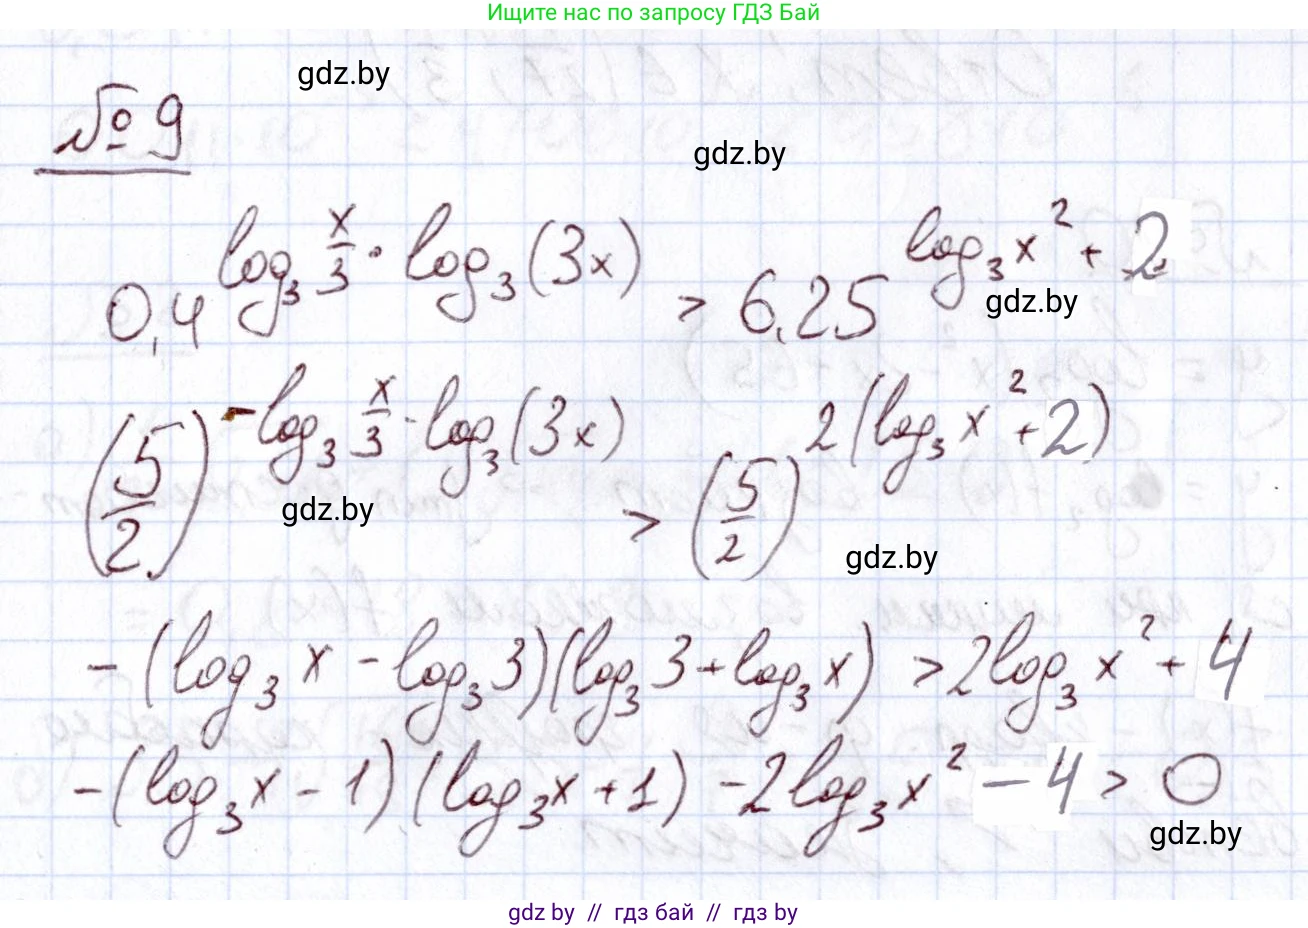 Ищите нас по запросу ГДЗ Бай
gdz.by
№ 9
gdz.by
0,4^(log₃ x/3 · log₃(3x)) > 6,25^(log₃ x² + 2)
gdz.by
(5/2)^(-log₃ x/3 · log₃(3x)) > (5/2)^(2(log₃ x² + 2))
gdz.by
gdz.by
-(log₃ x - log₃ 3)(log₃ 3 + log₃ x) > 2log₃ x² + 4
-(log₃ x - 1)(log₃ x + 1) - 2log₃ x² - 4 > 0
gdz.by
gdz by // гдз бай // гдз by